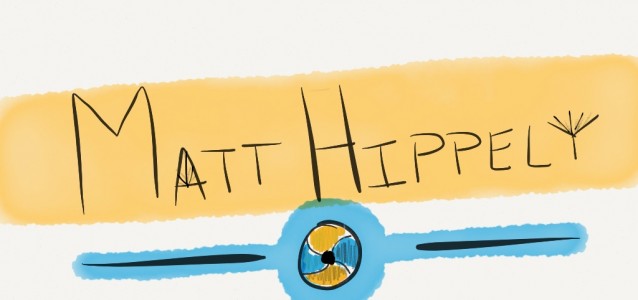 MATT HIPPELY